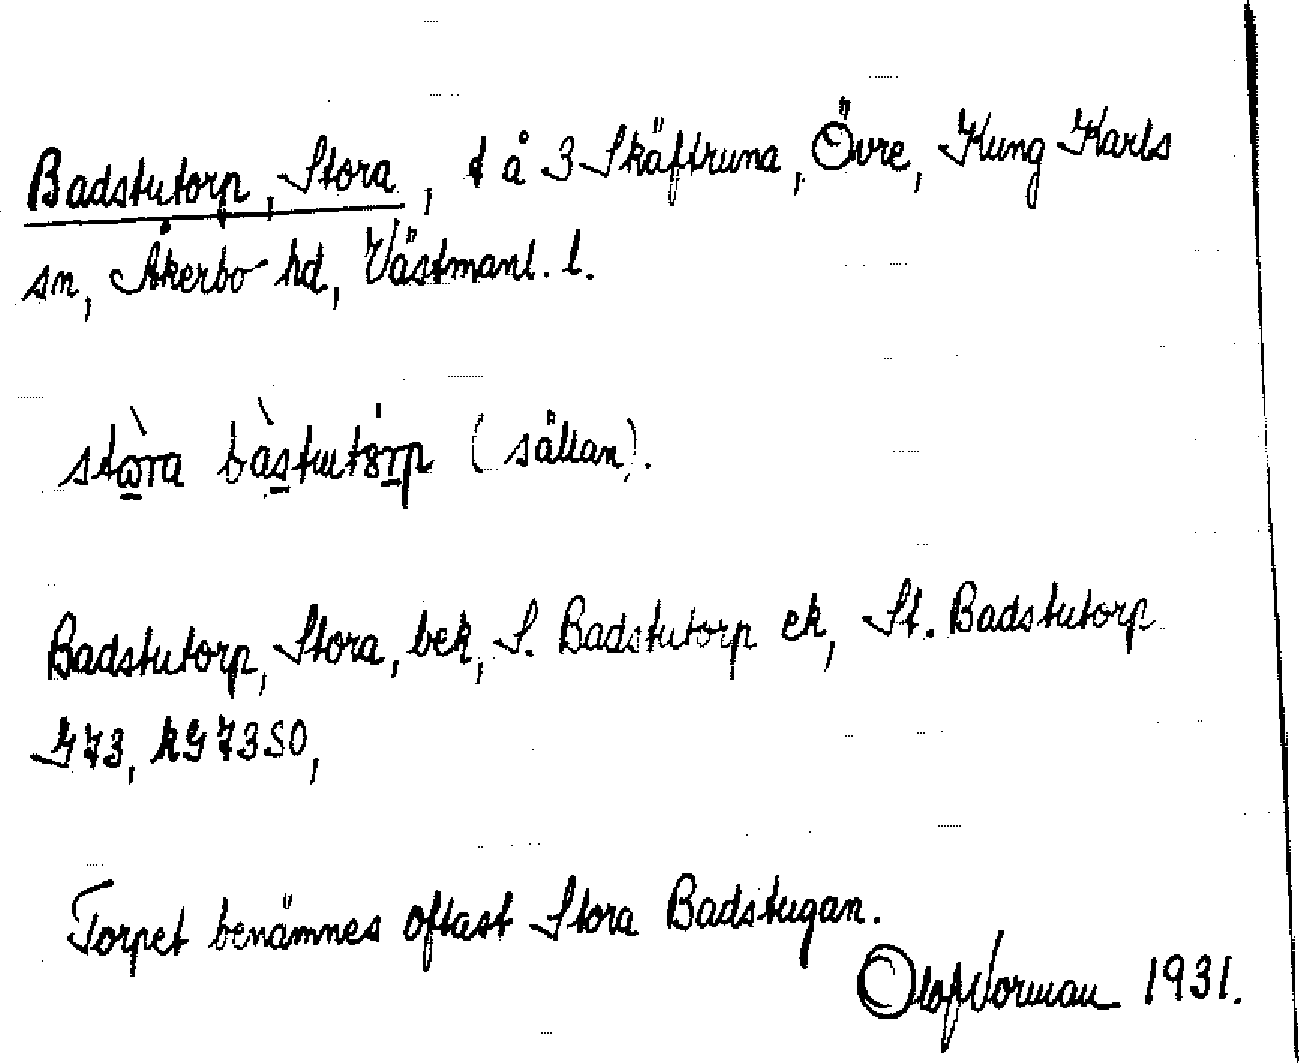 Badstutorp, Stora, t å 3 Skäftruna, Övre, Kung Karls
sn, Åkerbo hd, Västmanl. l.
stὼra bàstutörp (sällan).
Badstutorp, Stora, bek, S. Badstutorp ek, St. Badstutorp
G73, kG73SO,
Torpet benämnes oftast Stora Badstugan.
Olof Norman 1931.